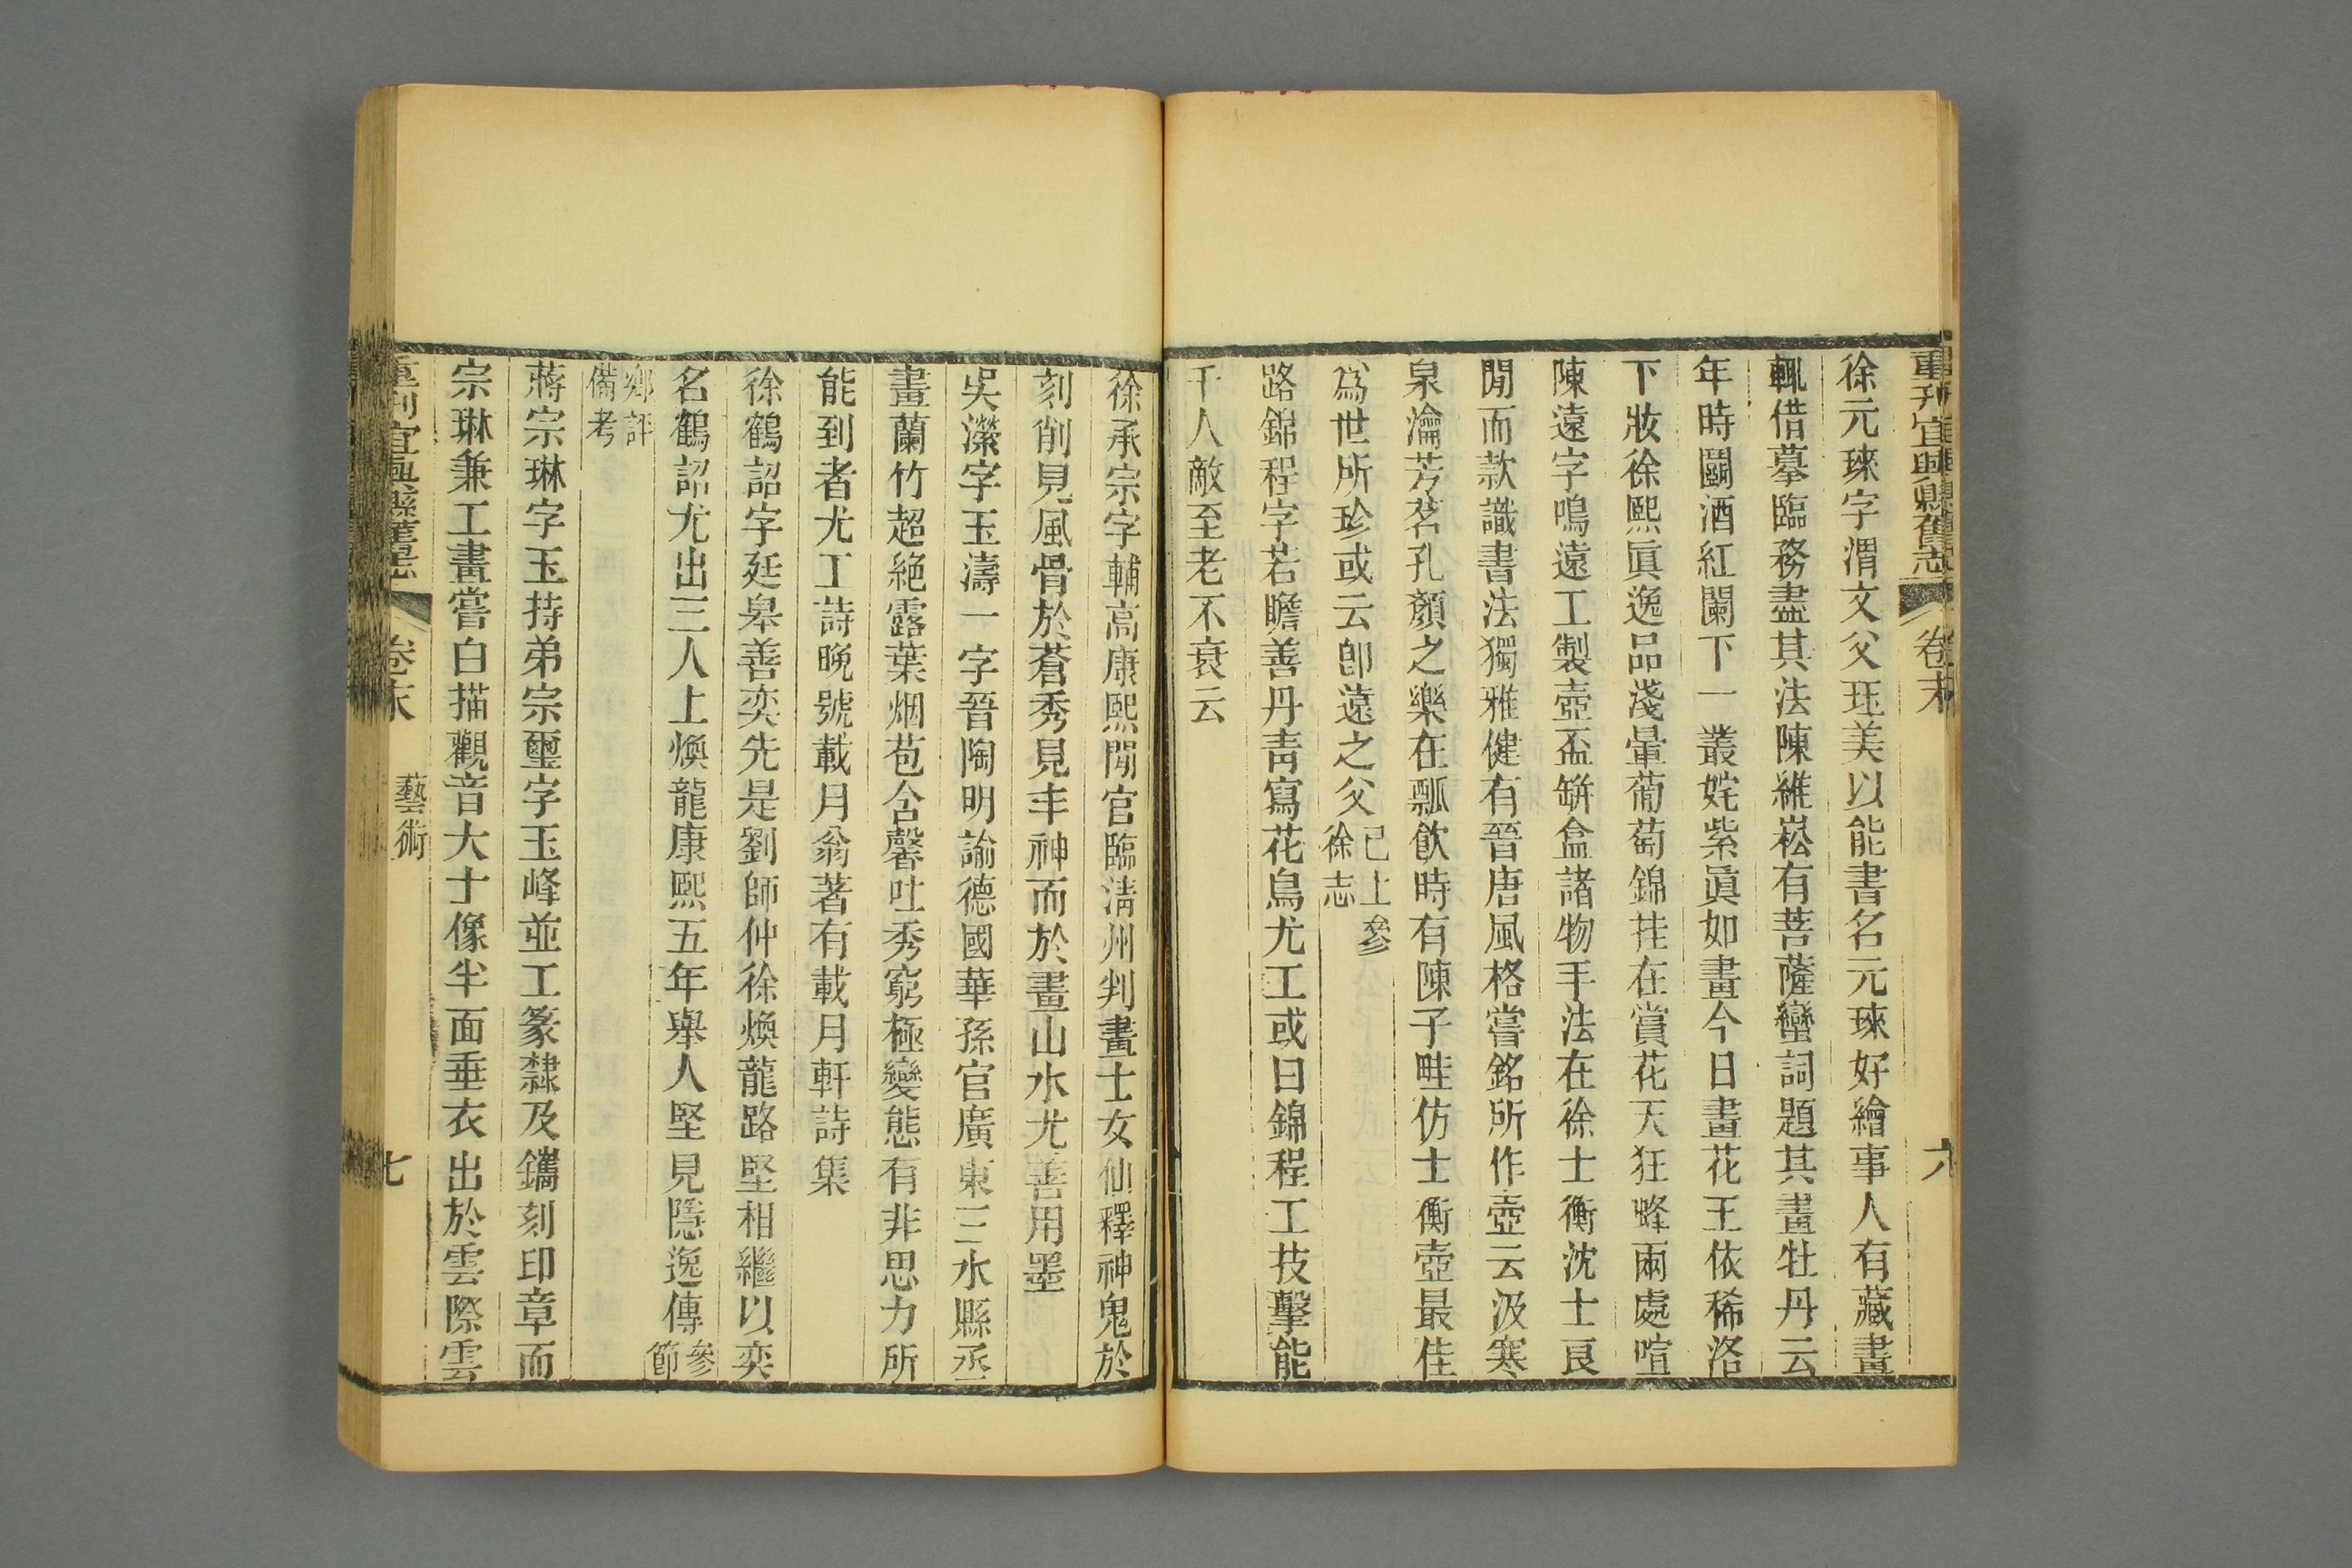 重刋宜興縣舊志 卷末 六
徐元琜字渭文父珏美以能書名元琜好繪事人有藏畫
輒借摹臨務盡其法陳維崧有菩薩蠻詞題其畫牡丹云
年時鬬酒紅闌下一叢姹紫眞如畫今日畫花王依稀洛
下妝徐熙眞逸品淺暈葡萄錦挂在賞花天狂蜂兩處喧
陳遠字鳴遠工製壺盃缾盒諸物手法在徐士衡沈士良
閒而款識書法獨雅健有晉唐風格嘗銘所作壺云汲寒
泉瀹芳茗孔顏之樂在瓢飮時有陳子畦仿士衡壺最佳
爲世所珍或云卽遠之父已上參徐志
路錦程字若瞻善丹靑寫花鳥尤工或曰錦程工技擊能
千人敵至老不衰云
徐承宗字輔高康熙閒官臨淸州判畫士女仙釋神鬼於
刻削見風骨於蒼秀見丰神而於畫山水尤善用墨
吳濴字玉濤一字晉陶明諭德國華孫官廣東三水縣丞
畫蘭竹超絶露葉烟苞含馨吐秀窮極變態有非思力所
能到者尤工詩晚號載月翁著有載月軒詩集
徐鶴詔字延皋善奕先是劉師仲徐煥龍路堅相繼以奕
名鶴詔尤出三人上煥龍康熙五年舉人堅見隱逸傳參節
鄕評備考
蔣宗琳字玉持弟宗璽字玉峰並工篆隸及鐫刻印章而
宗琳兼工畫嘗白描觀音大士像半面垂衣出於雲際雲
重刋宜興縣舊志 卷末 藝術 七